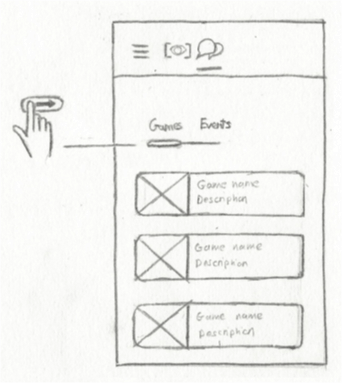 Games Events
Game name
Description
Game name
Description
Game name
Description